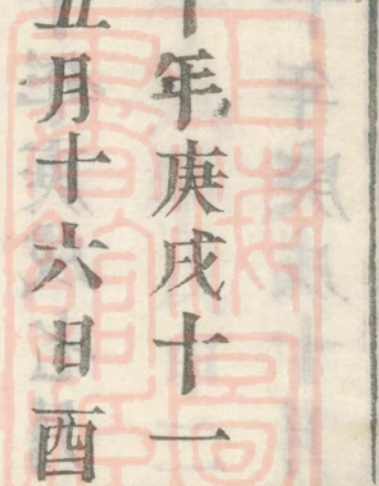 年庚戌十一
五月十六日酉